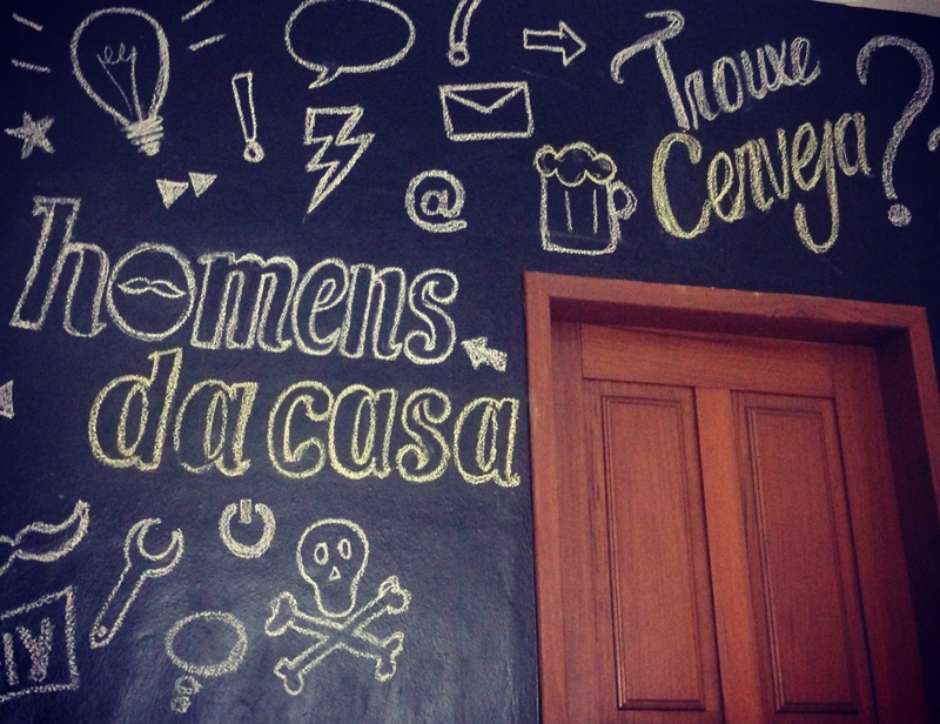 Trouxe
Cerveja?
@
homens
da casa